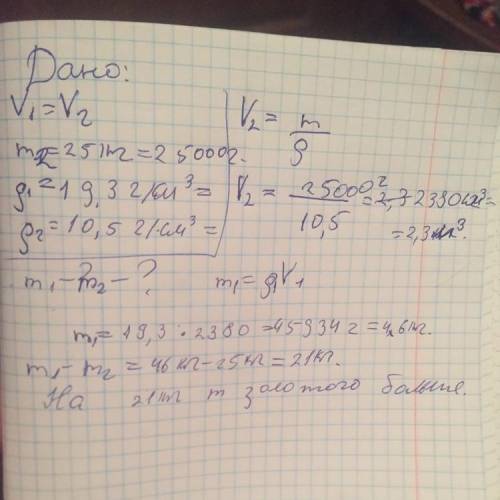 Дано:
V₁ = V₂
m₂ = 25 кг = 25000 г.
ρ₁ = 19,3 г/см³ =
ρ₂ = 10,5 г/см³ =
m₁ - m₂ - ?
V₂ = m/ρ
V₂ = 25000 г/10,5 = 2380 см³ =
= 2,3 м³.
m₁ = ρ₁V₁
m₁ = 19,3 · 2380 = 45934 г = 46 кг.
m₁ - m₂ = 46 кг - 25 кг = 21 кг.
На 21 кг m золотого больше.